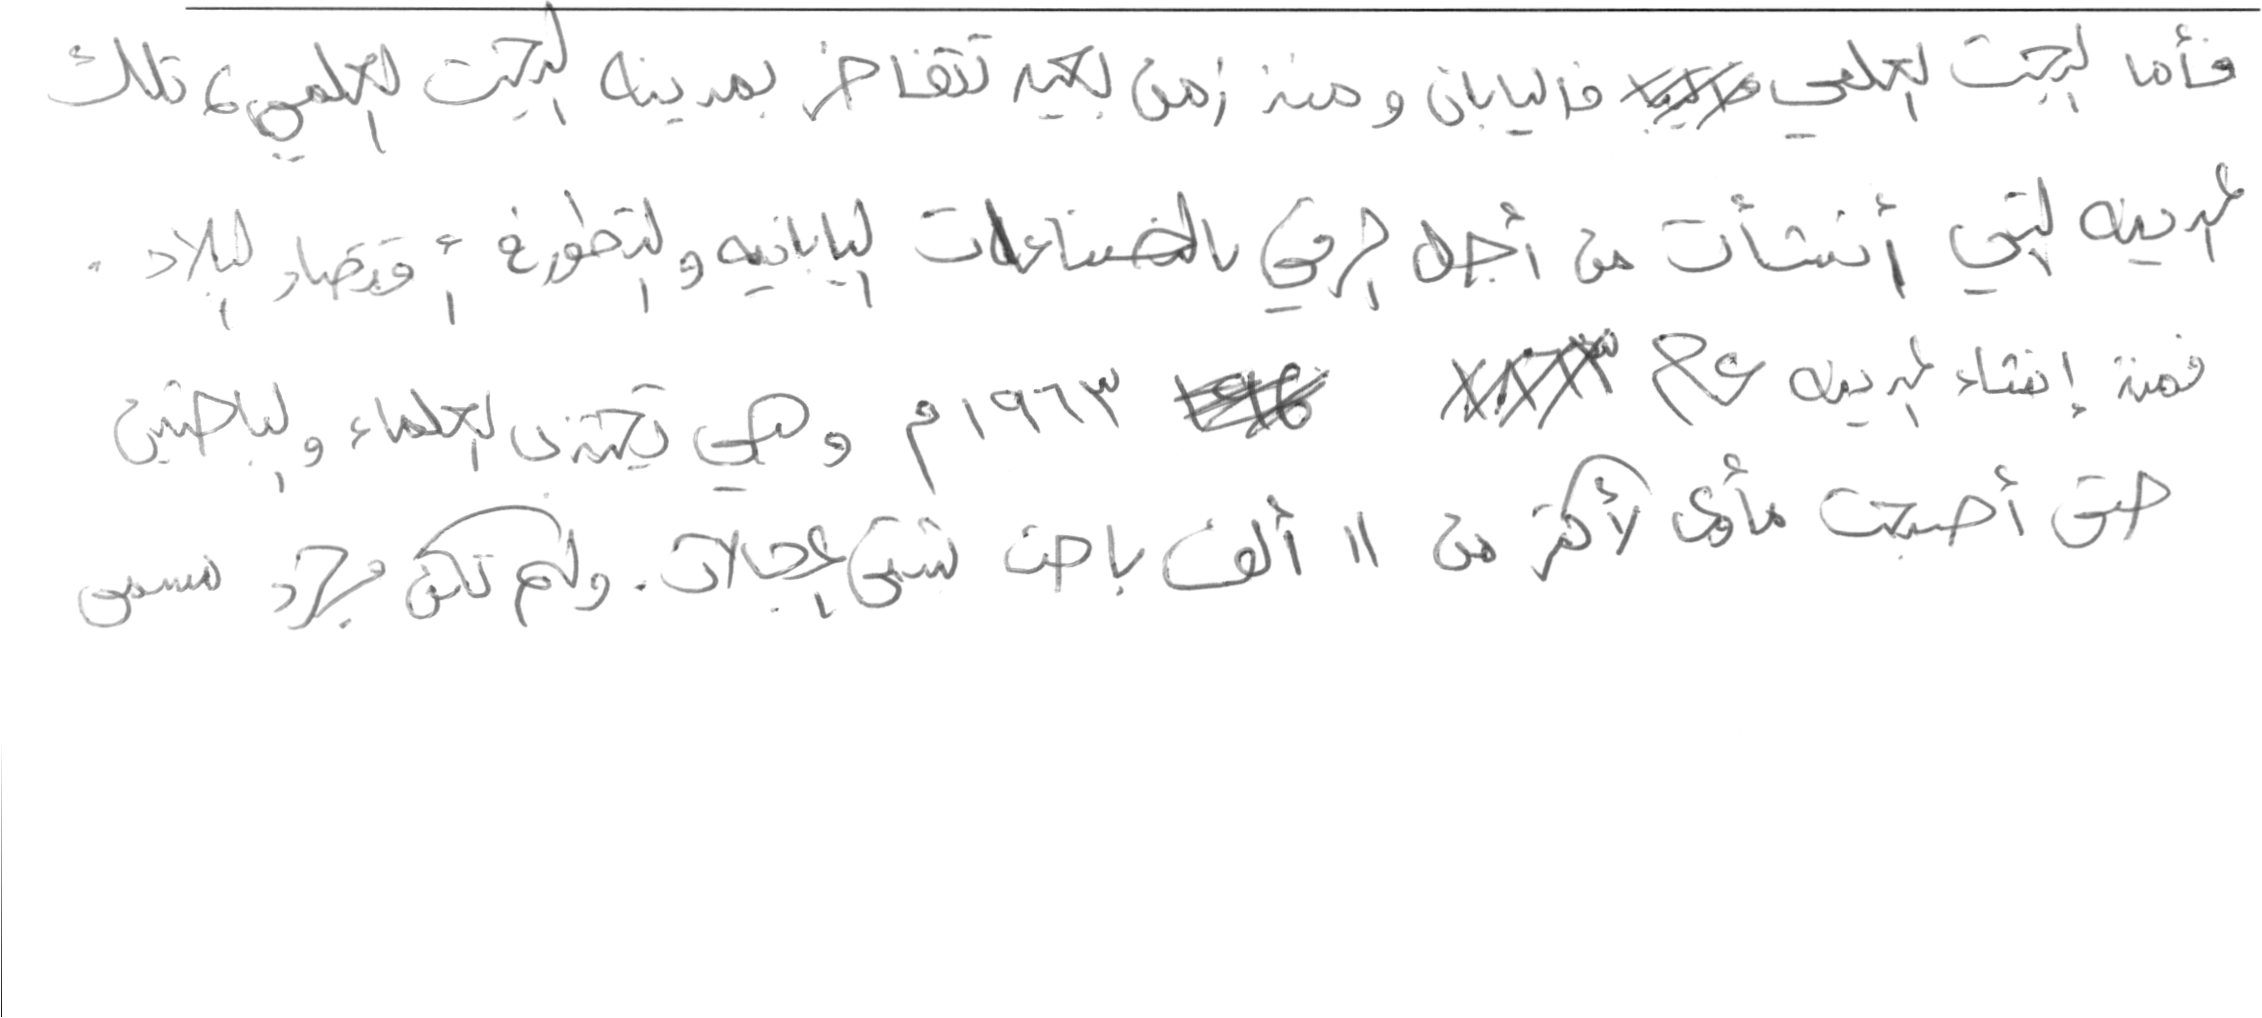 فأما البحث العلمي فاليابان ومنذ زمن بعيد تتفاخر بمدينه البحث العلمي، تلك
المدينه التي أنشأت من أجل الرقي بالصناعات اليابانيه والتطور في أقتصاد البلاد.
فمنذ إنشاء المدينه عام ١٩٦٣م وهي تجتذب العلماء والباحثين
حتى أصبحت مأوى لأكثر من ١١ ألف باحث بشتى المجالات. ولم تكن مجرد مسمى